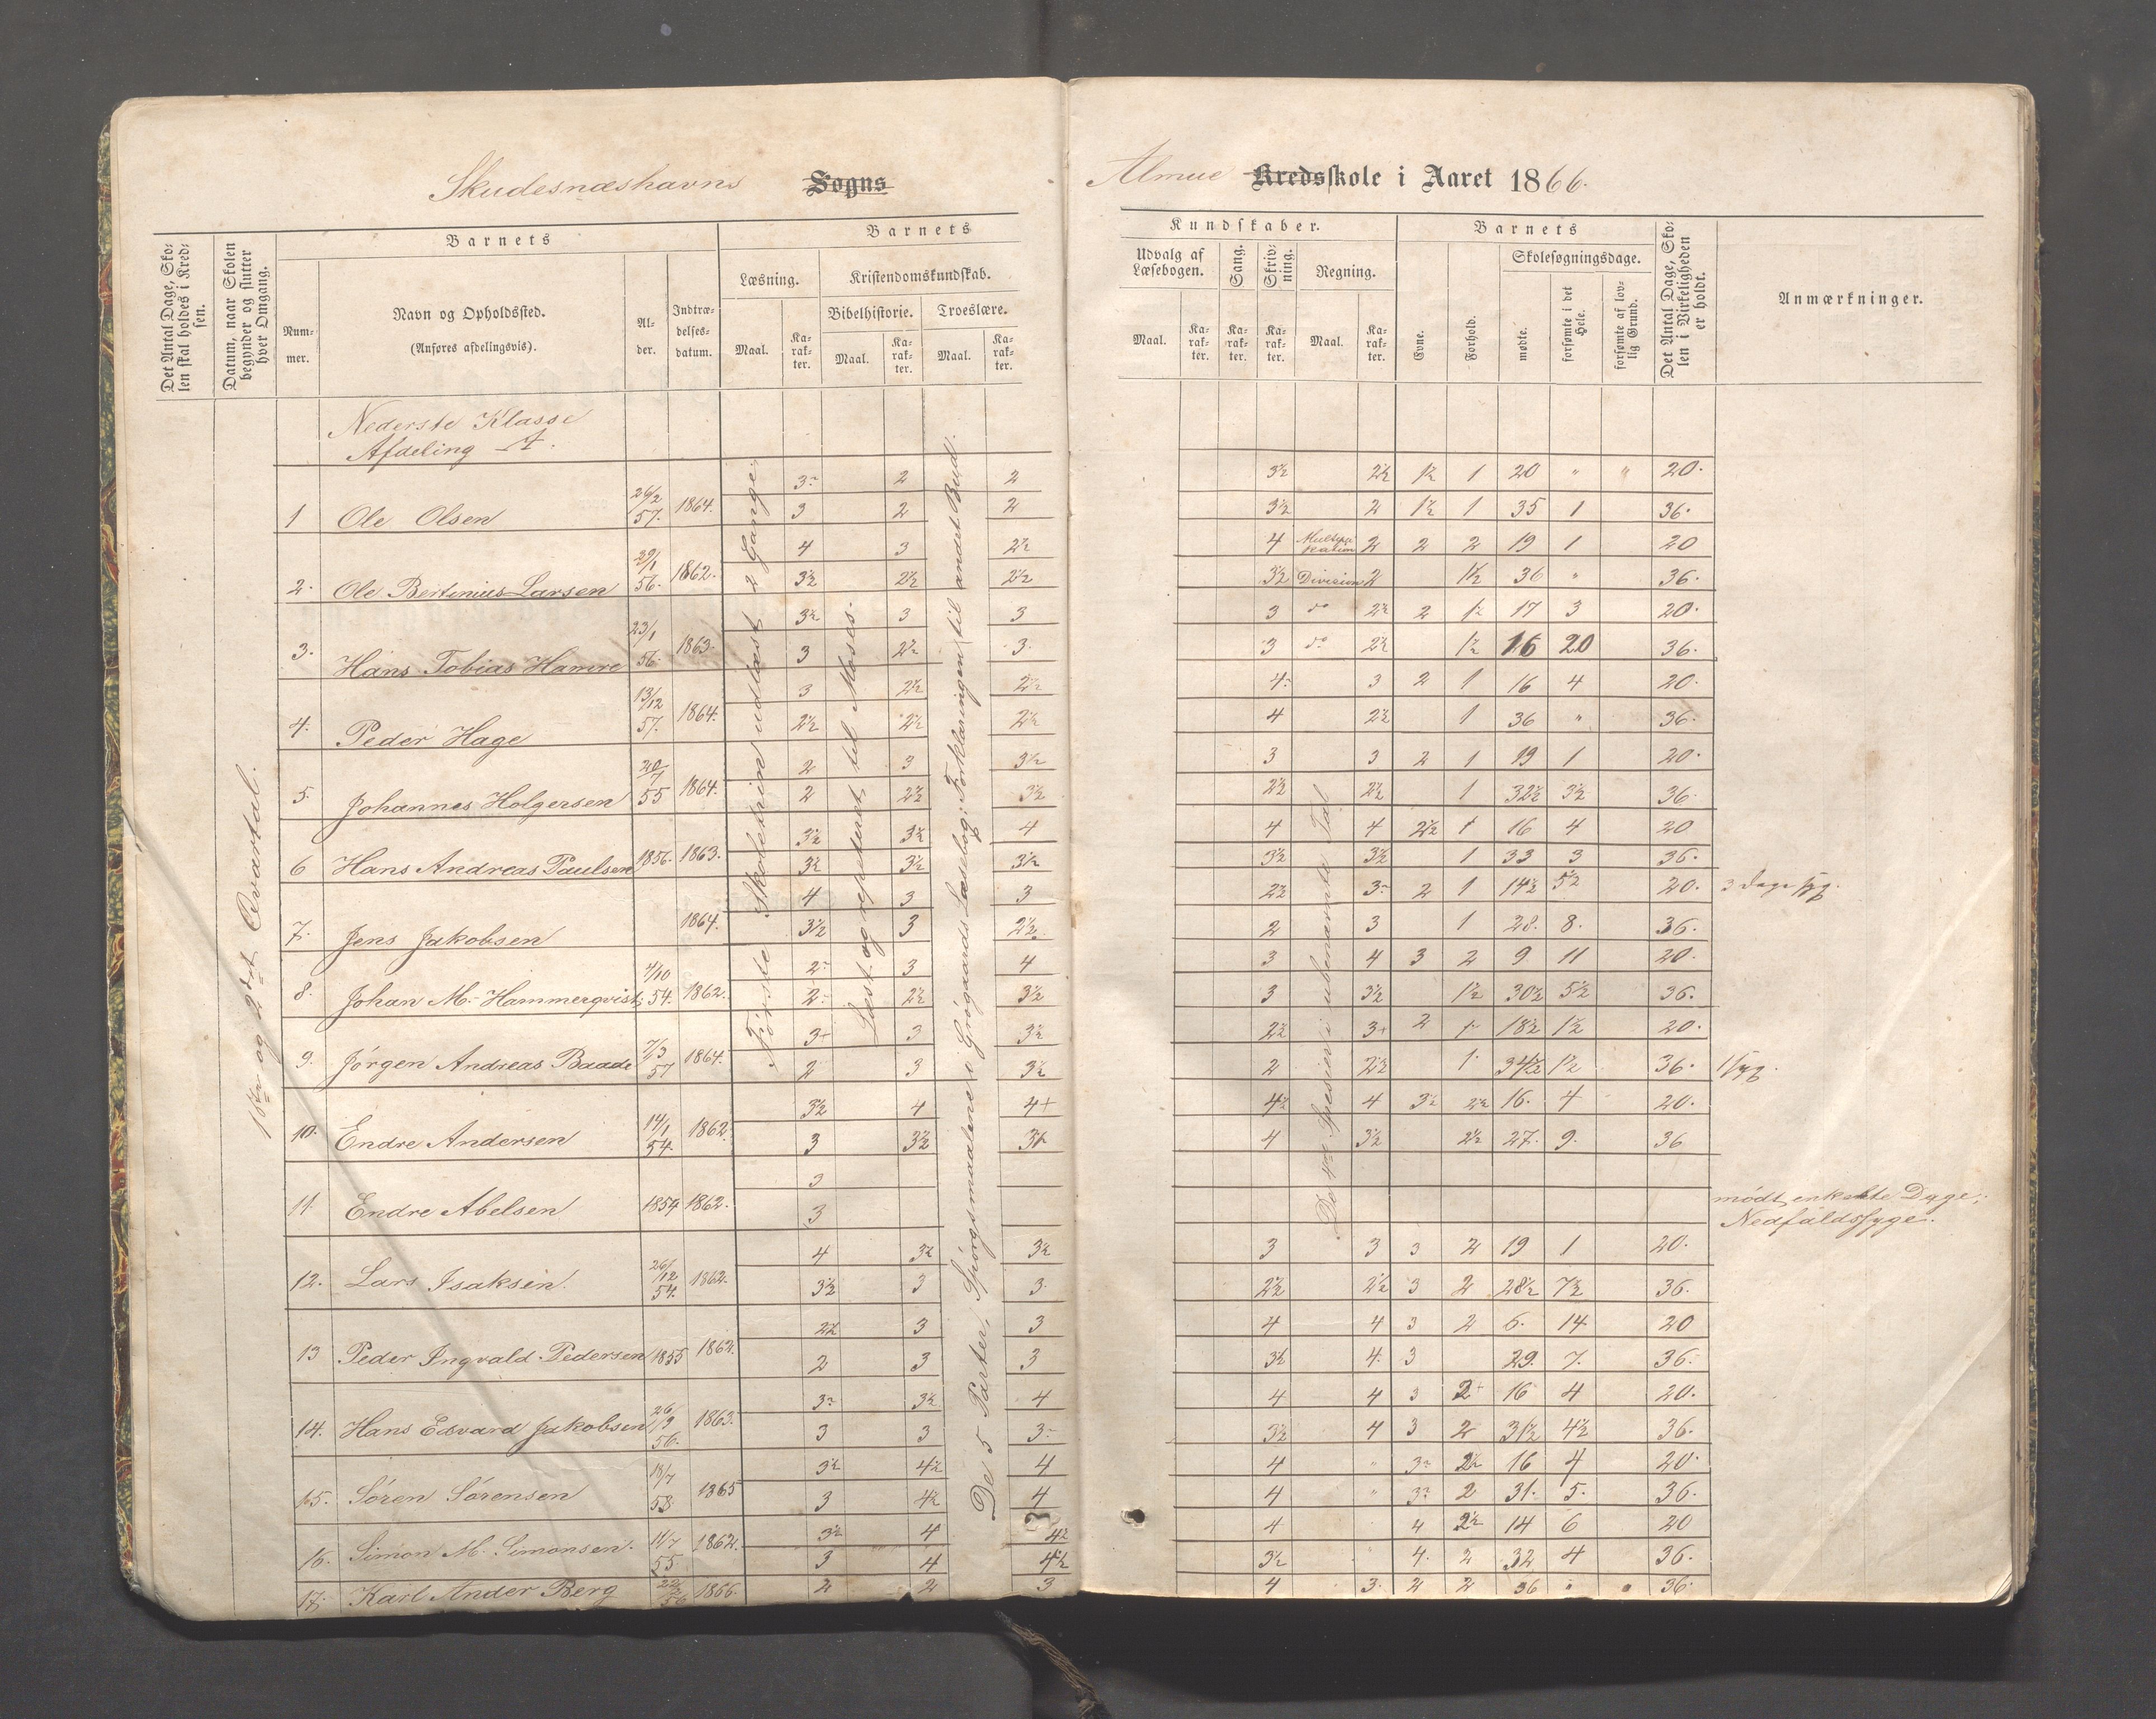 Skudesnæshavns Sogns Almue Kredsskole i Aaret 1866.
Det Antal Dage, Skolen skal holdes i Kredsen.
Datum, naar Skolen begynder og slutter hver Omgang.
Barnets
Nummer.
Navn og Opholdssted.
(Anføres afdelingsvis).
Alder.
Indtrædelsesdatum.
Barnets
Læsning.
Maal.
Karakter.
Kristendomskundskab.
Bibelhistorie.
Maal.
Karakter.
Troeslære.
Maal.
Karakter.
Kundskaber.
Udvalg af Læsebogen.
Maal.
Karakter.
Sang.
Karakter.
Skrivning.
Karakter.
Regning.
Maal.
Karakter.
Barnets
Evne.
Forhold.
Skolesøgningsdage.
mødte.
forsømte i det Hele.
forsømte af lovlig Grund.
Det Antal Dage, Skolen i Virkeligheden er holdt.
Anmærkninger.
1ste og 2det Qvartal.
Nederste Klasse
Afdeling A.
Første Skoletrin udlæst 2 Gange.
Læst og repeteret til Moses.
De 5 Parter, Spørgsmaalene i Grøgaards Læsebog; Forklaringen til andet Bud.
De 4re Spesier i ubenævnte Tal
1 Ole Olsen 26/2 57. 1864.
3÷ 2 2 3½ 2½ 1½ 1 20 " " 20.
3 2 2 3½ 2 1½ 1 35 1 36.
2. Ole Bertinius Larsen 29/1 56. 1862.
4 3 2½ 4 Multiplikation 2 2 2 19 1 20
3½ 2½ 2½ 3½ Division 2 1½ 36 " 36.
3. Hans Tobias Hamre 23/1 56. 1863.
3½ 3 3 3 do 2½ 2 1½ 17 3 20.
3 2½ 3. 3 do 2½ 1½ 16 20 36.
4. Peder Hage 13/12 57. 1864.
3 2½ 2½ 4÷ 3 2 1 16 4 20.
2½ 2½ 2½ 4 2½ 1 36 " 36.
5. Johannes Holgersen 20/7 55 1864.
2 3 3½ 3 3 2 1 19 1 20.
2 2½ 3½ 2½ 2½ 1 32½ 3½ 36.
6 Hans Andreas Paulsen 1856. 1863.
3½ 3½ 4 4 4 2½ 1 16 4 20
3½ 3½ 3½ 3½ 3½ 1 33 3 36.
7. Jens Jakobsen 1864.
4 3 3 2½ 3÷ 2 1 14½ 5½ 20. 3 Dage syg.
3½ 3 2½. 2 3 1 28. 8. 36.
8. Johan M. Hammerqvist 4/10 54. 1862.
2÷ 3 4 3 4 3 2 9 11 20.
2÷ 2½ 3½ 3 3½ 1½ 30½ 5½ 36.
9. Jørgen Andreas Baade 7/3 57 1864.
3+ 3 3½ 2½ 3+ 2 1÷ 18½ 1½ 20.
2 3 3½ 2 2½ 1. 34½ 1½ 36. 1 syg.
10. Endre Andersen 14/1 54. 1862.
3½ 4 4+ 4½ 4 3½ 2½ 16. 4 20.
3 3½ 3½ 4 3½ 2½ 27. 9. 36
11. Endre Abelsen 1854 1862.
3
3
mødt enkelte Dage;
Nedfaldssyge.
12. Lars Isaksen. 26/12 54. 1862.
4 3½ 3½ 3 3 3 2 19 1 20.
3½ 3 3. 2½ 2½ 3 2 28½ 7½ 36.
13 Peder Ingvald Pedersen 1855 1862.
2½ 3 3 4 4 3 2 6. 14 20
2 3 3 3½ 4. 3 29. 7. 36.
14. Hans Edvard Jakobsen 26/9 56. 1863.
3÷ 3½ 4 4 4 3 2+ 16 4 20.
3 3 3÷ 3½ 4 3 2 31½ 4½ 36.
15. Søren Sørensen 18/7 58. 1865
3½ 4½ 4 4 " 3÷ 2½ 16 4 20.
3 4½ 4 4 " 3÷ 2 31. 5. 36.
16. Simon M. Simonsen. 11/7 55. 1862.
3½ 4 4½ 4 4 2½ 14 6 20
3 4 4½ 3½ " 4. 2 32 4 36.
17. Karl Ander Berg 22/2 56 1866.
2 2 3 4 3. 2 2 36 " " 36.